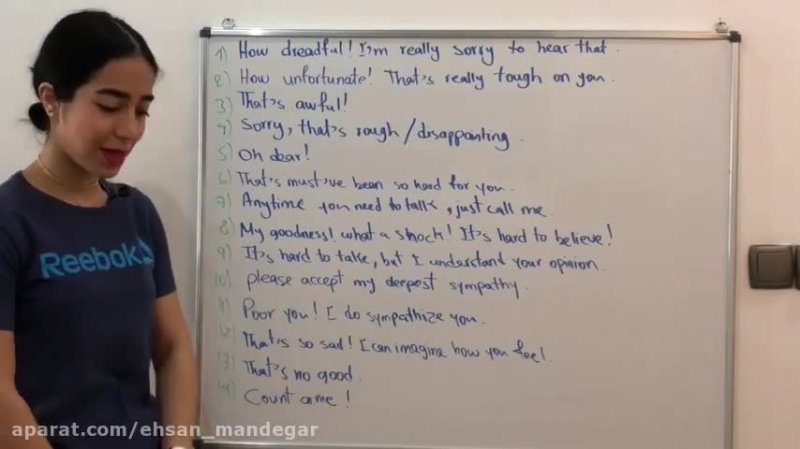 1) How dreadful! I'm really sorry to hear that.
2) How unfortunate! That's really tough on you.
3) That's awful!
4) Sorry, that's rough/disappointing.
5) Oh dear!
6) That's must've been so hard for you.
7) Anytime you need to talk, just call me.
8) My goodness! what a shock! It's hard to believe!
9) It's hard to take, but I understand your opinion.
10) please accept my deepest sympathy.
11) Poor you! I do sympathize you.
12) That's so sad! I can imagine how you feel.
13) That's no good.
14) Count on me!
Reebok
aparat.com/ehsan_mandegar